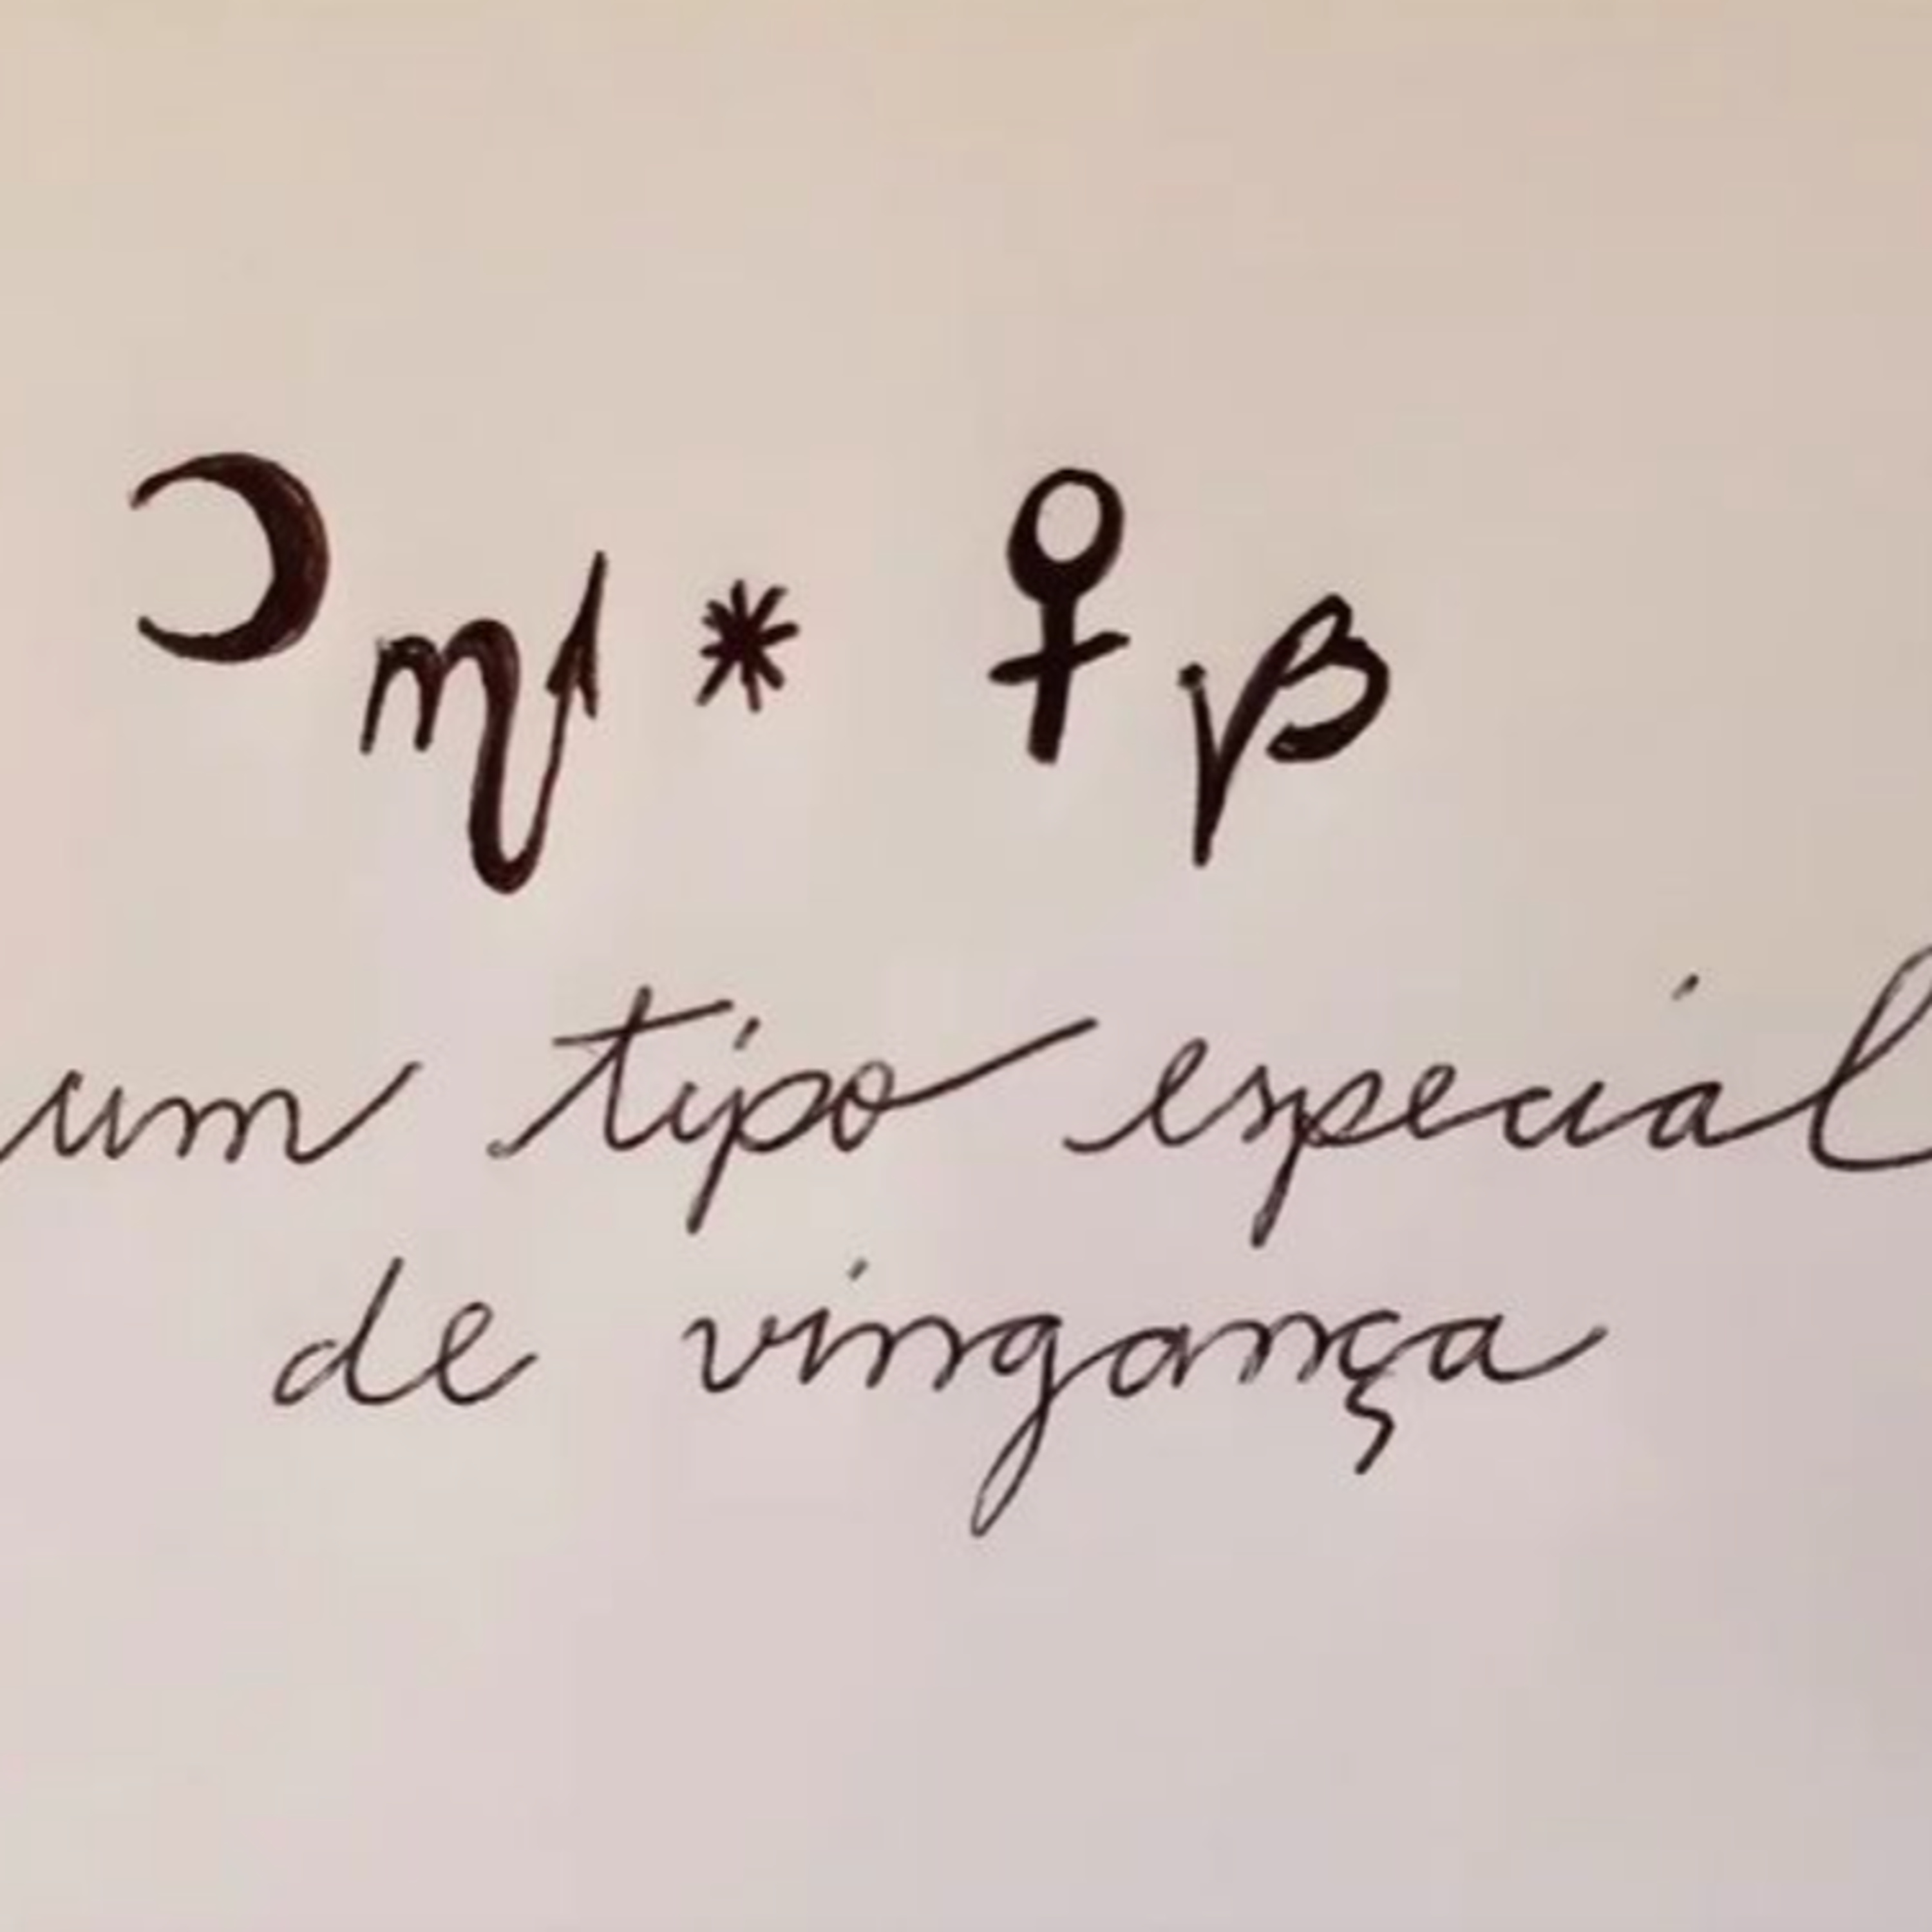 ☽♏︎ * ♀︎ ♑︎
um tipo especial
de vingança